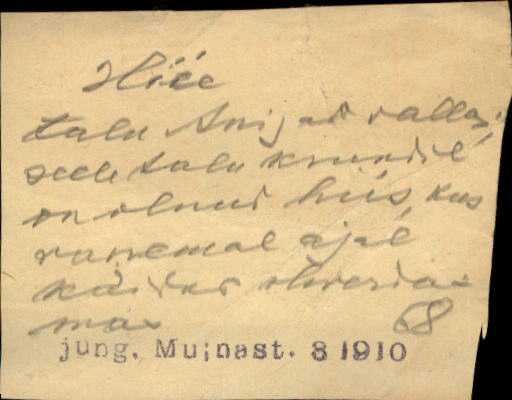 Hiie
talu Anijas vallas,
selle talu krundil
on olnud hiis, kus
vanemal ajal
käidud ohverda-
mas 68
jung, Mu;nast. 8 1910